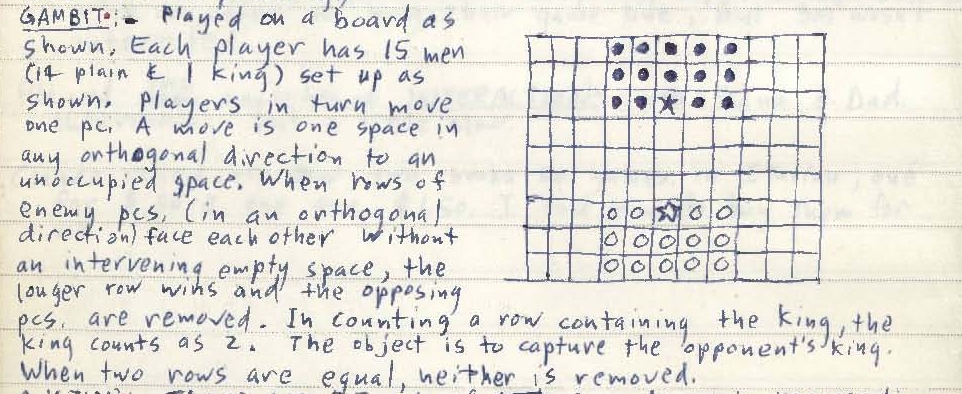 GAMBIT:- Played on a board as
shown. Each player has 15 men
(14 plain & 1 king) set up as
shown. Players in turn move
one pc. A move is one space in
any orthogonal direction to an
unoccupied space. When rows of
enemy pcs. (in an orthogonal
direction) face each other without
an intervening empty space, the
longer row wins and the opposing
pcs. are removed. In counting a row containing the king, the
king counts as 2. The object is to capture the opponent's king.
When two rows are equal, neither is removed.